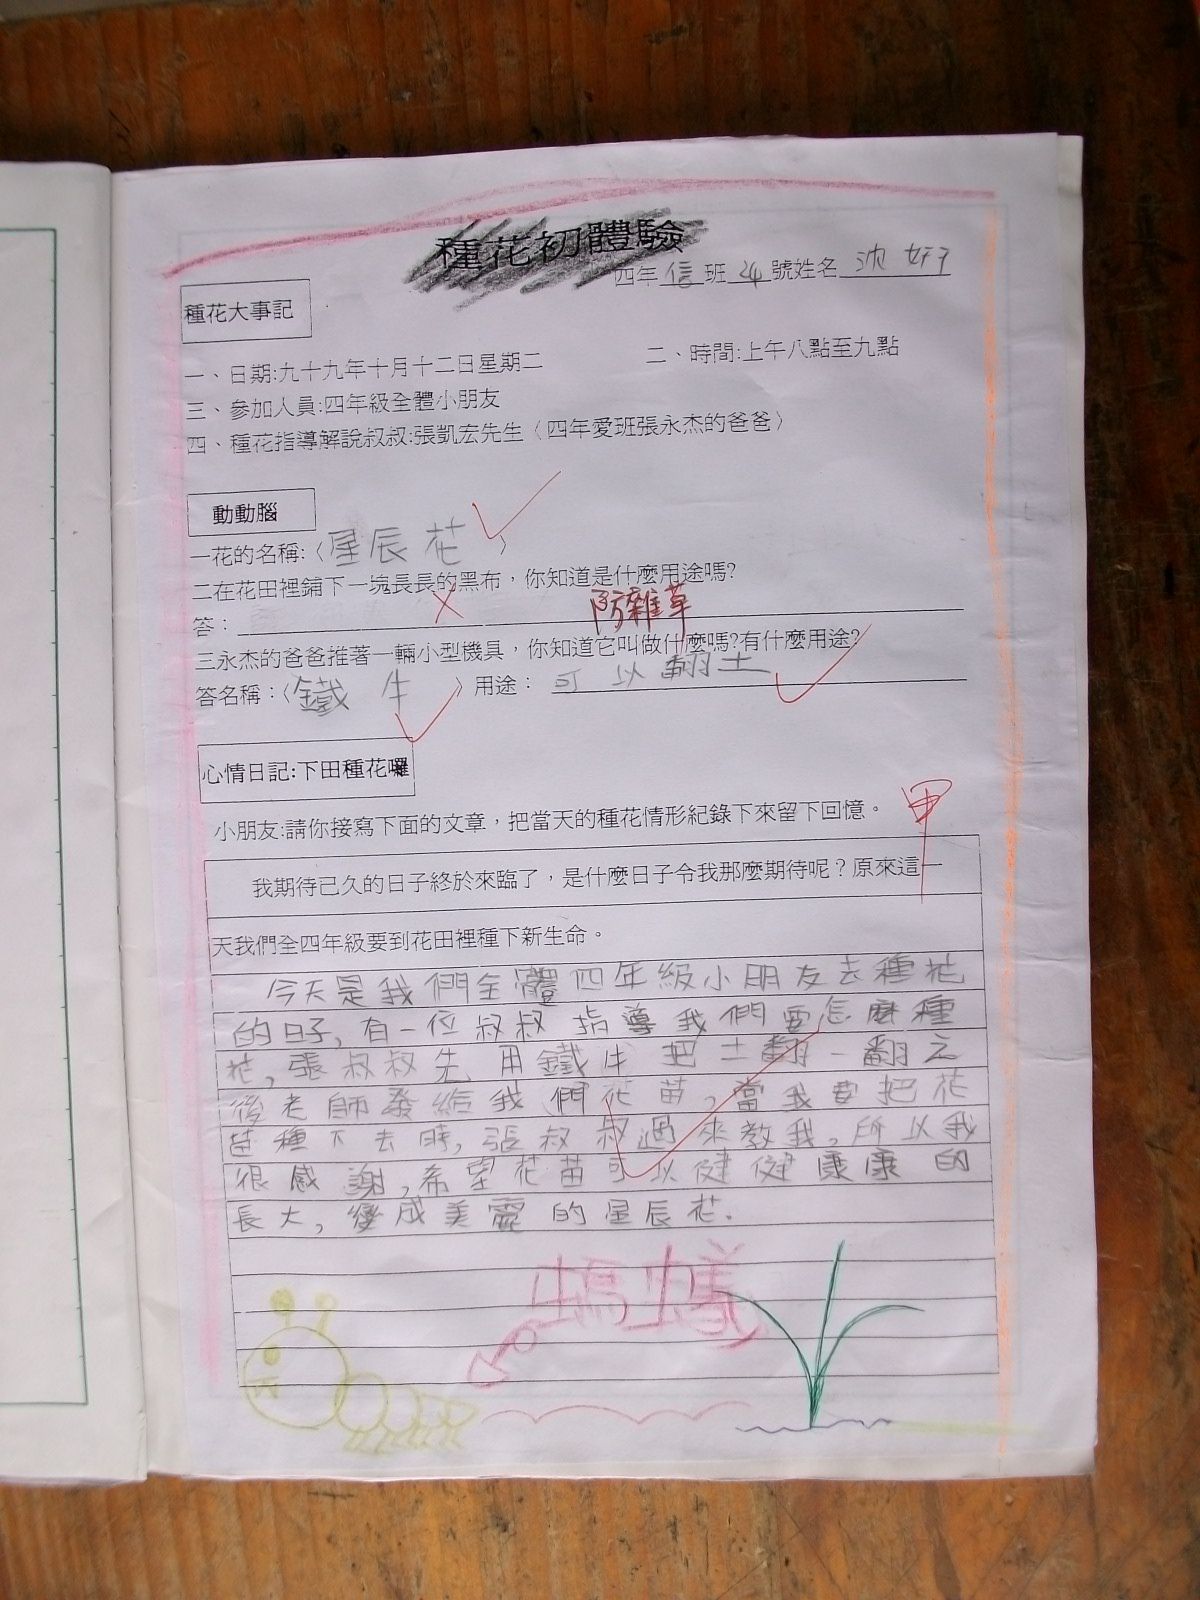 種花初體驗
四年信班24號姓名沈妤
種花大事記
一、日期:九十九年十月十二日星期二 二、時間:上午八點至九點
三、參加人員:四年級全體小朋友
四、種花指導解說叔叔:張凱宏先生〈四年愛班張永杰的爸爸〉
動動腦
一花的名稱:〈星辰花〉
二在花田裡鋪下一塊長長的黑布，你知道是什麼用途嗎?
答： 防雜草
三永杰的爸爸推著一輛小型機具，你知道它叫做什麼嗎?有什麼用途?
答名稱：〈鐵牛〉用途：可以翻土
心情日記:下田種花囉
甲
小朋友:請你接寫下面的文章，把當天的種花情形紀錄下來留下回憶。
我期待已久的日子終於來臨了，是什麼日子令我那麼期待呢？原來這一
天我們全四年級要到花田裡種下新生命。
今天是我們全體四年級小朋友去種花
的日子,有一位叔叔指導我們要怎麼種
花,張叔叔先用鐵牛把土翻一翻之
後老師發給我們花苗,當我要把花
苗種下去時,張叔叔過來教我,所以我
很感謝,希望花苗可以健健康康的
長大,變成美靈的星辰花.
螞蟻